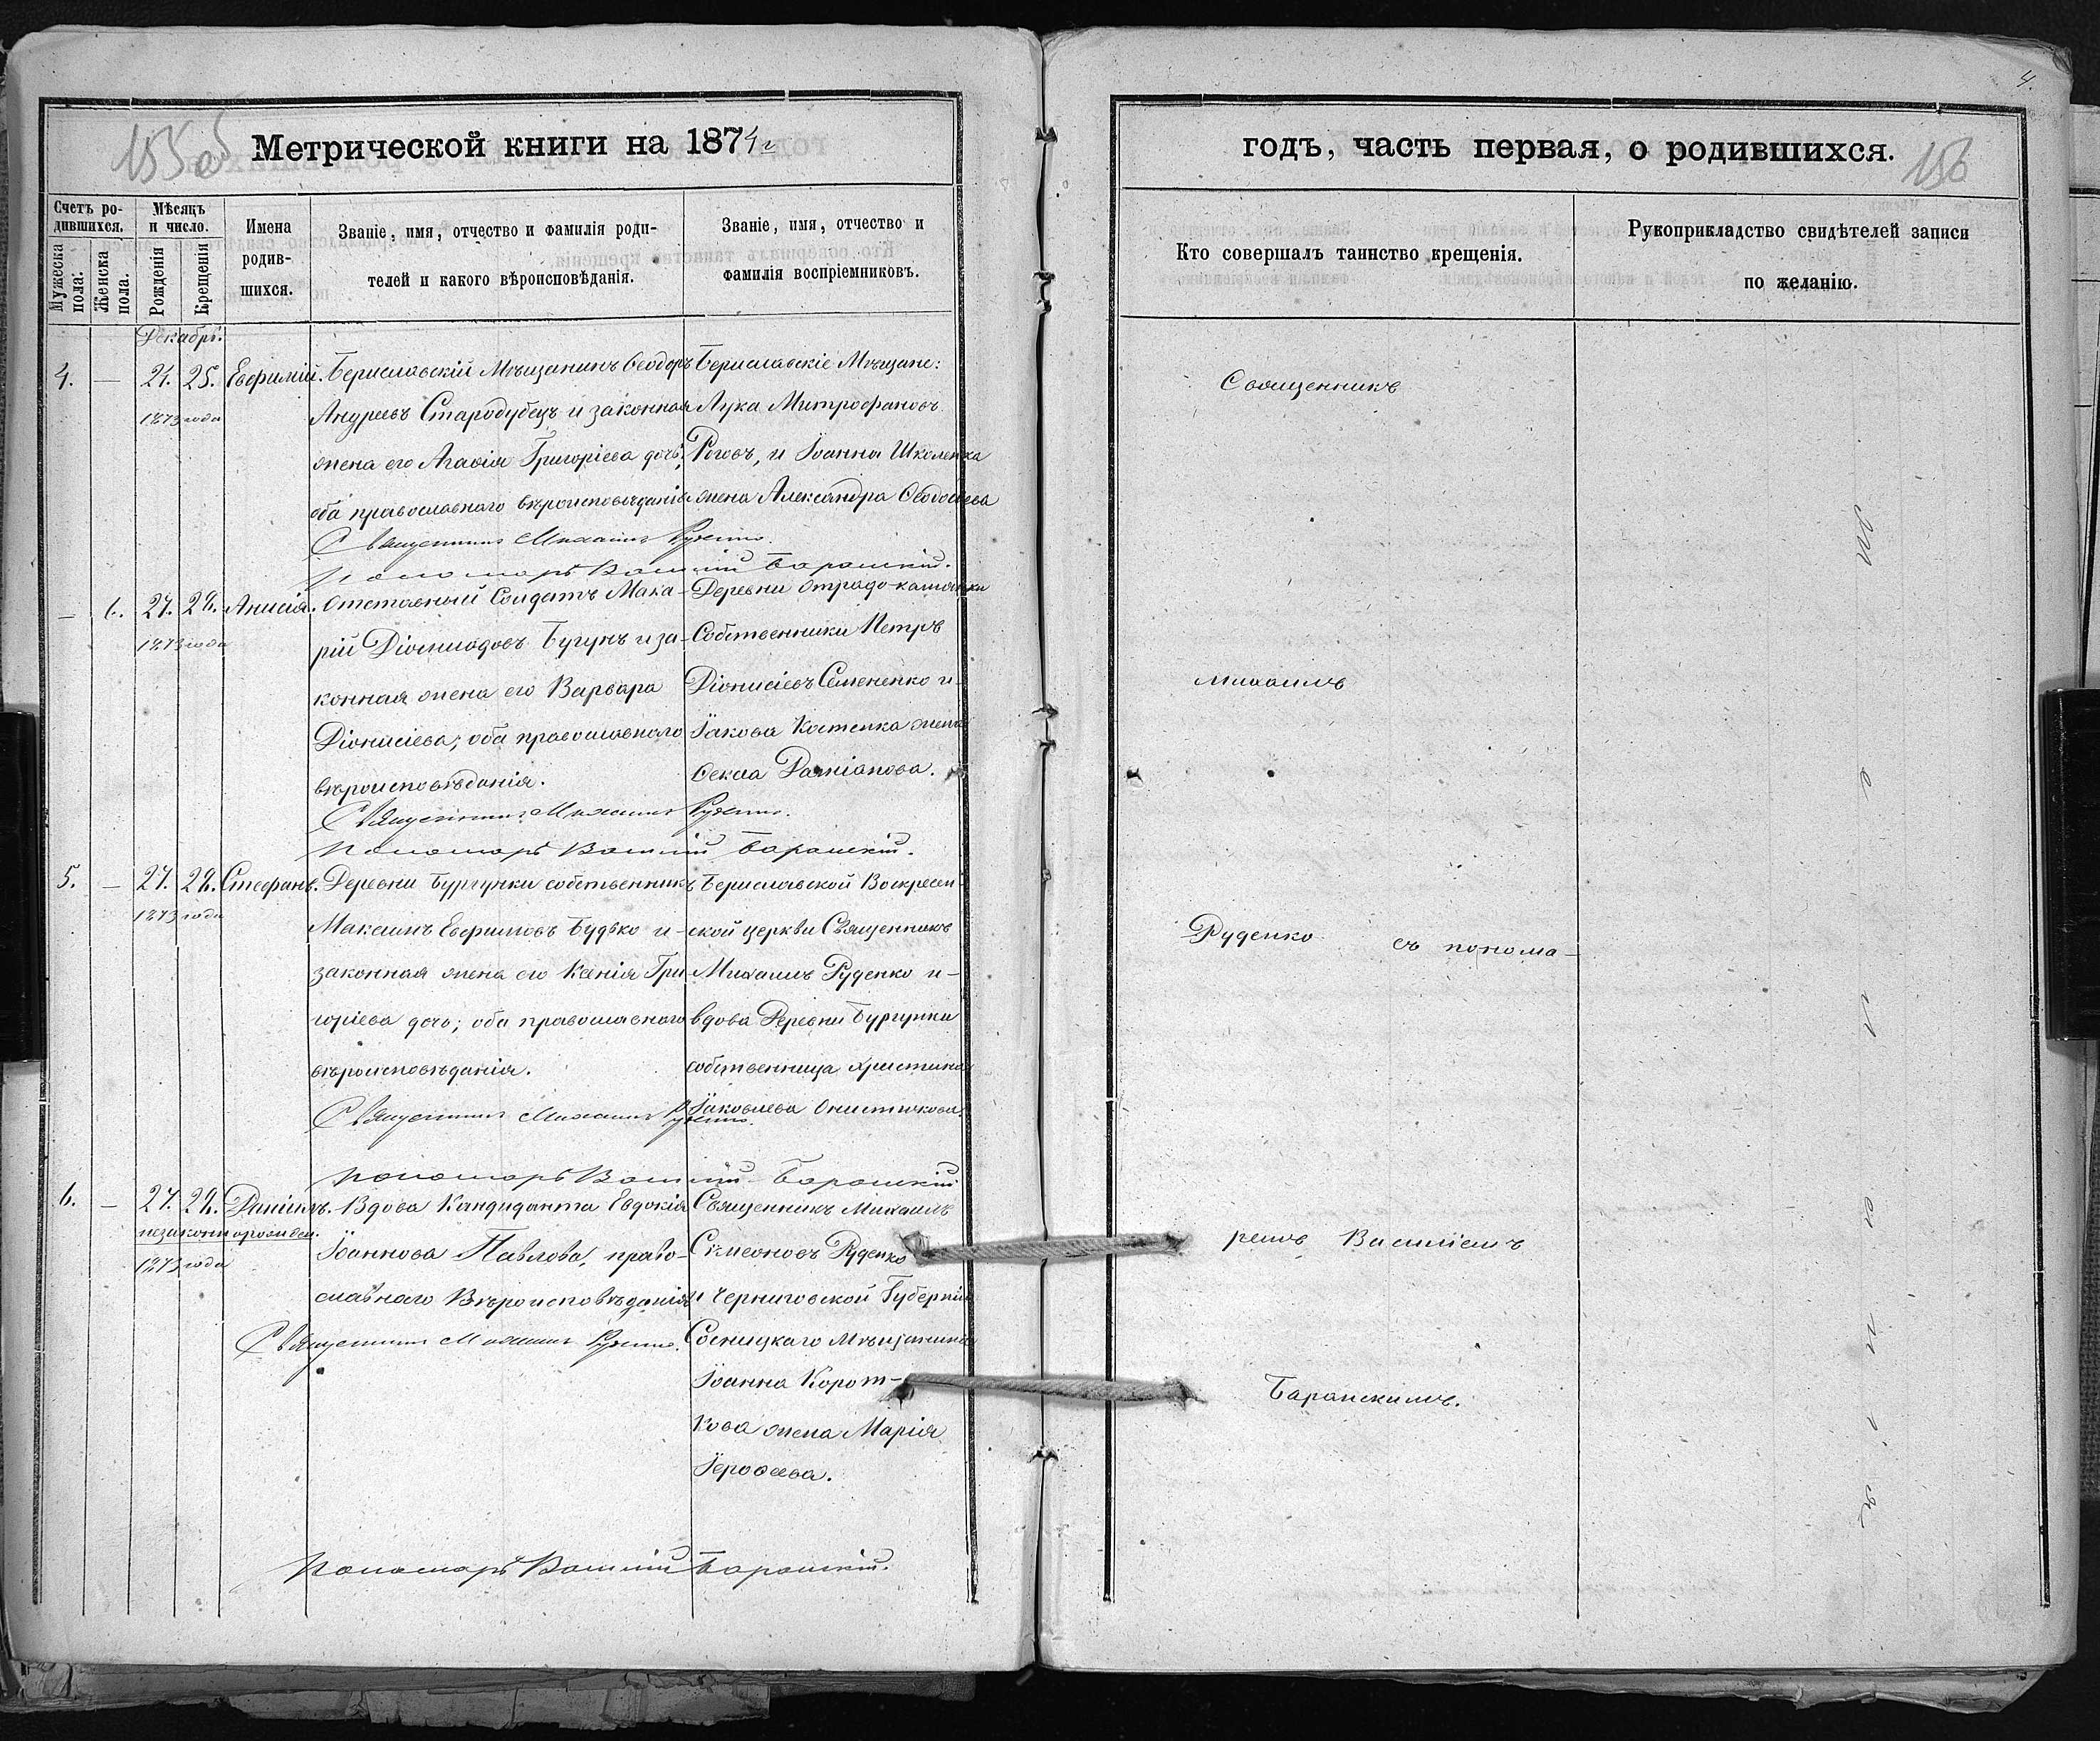 4.
155об
Метрической книги на 1874 г
годъ, часть первая, о родившихся.
156
Счетъ ро-
дившихся.
Мужеска
пола.
Женска
пола.
Мѣсяцъ
и число.
Рожденія
Крещенія
Имена
родив-
шихся.
Званіе, имя, отчество и фамилія роди-
телей и какого вѣроисповѣданія.
Званіе, имя, отчество и
фамилія воспріемниковъ.
Кто совершалъ таинство крещенія.
Рукоприкладство свидѣтелей записи
по желанію.
Декабрь.
4. — 21. 25. Евфимій.
1873 года
Бериславскій Мѣщанинъ Ѳеодоръ
Андреевъ Стародубецъ и законная
жена его Агаѳія Григоріева дочь,
оба православнаго вѣроисповѣданія
Бериславскіе Мѣщане:
Лука Митрофановъ
Роговъ, и Іоанна Школенка
жена Александра Ѳеодосіева
Священникъ Михаилъ Руденко.
Пономарь Василій Баранскій.
— 6. 27. 28. Анисія.
1873 года
Отставный Солдатъ Мака-
рій Діомидовъ Бугунъ и за-
конная жена его Варвара
Діонисіева; оба православнаго
вѣроисповѣданія.
Деревни Отрадо-каменки
Собственники Петръ
Діонисіевъ Семененко и
Іакова Костенка жена
Ѳекла Даміанова.
Священникъ Михаилъ Руденко.
Пономарь Василій Баранскій.
5. — 27. 28. Стефанъ.
1873 года
Деревни Бургунки собственникъ
Максимъ Евфимовъ Будько и
законная жена его Ксенія Гри-
горіева дочь; оба православнаго
вѣроисповѣданія.
Бериславской Воскресен-
ской церкви Священникъ
Михаилъ Руденко и —
вдова Деревни Бургунки
собственница Христина
Іаковлева Онистикова.
Священникъ Михаилъ Руденко.
Пономарь Василій Баранскій
6. — 27. 28. Даніилъ.
незаконнорожден.
1873 года
Вдова Кандиданта Евдокія
Іоаннова Павлова, право-
славнаго Вѣроисповѣданія
Священникъ Михаилъ
Симеоновъ Руденко
и Черниговской Губерніи
Сосницкаго Мѣщанина
Іоанна Корот-
кова жена Марія
Іероѳеева.
Священникъ Михаилъ Руденко.
Пономарь Василій Баранскій.
Священникъ
Михаилъ
Руденко съ понома-
ремъ Василіемъ
Баранскимъ.